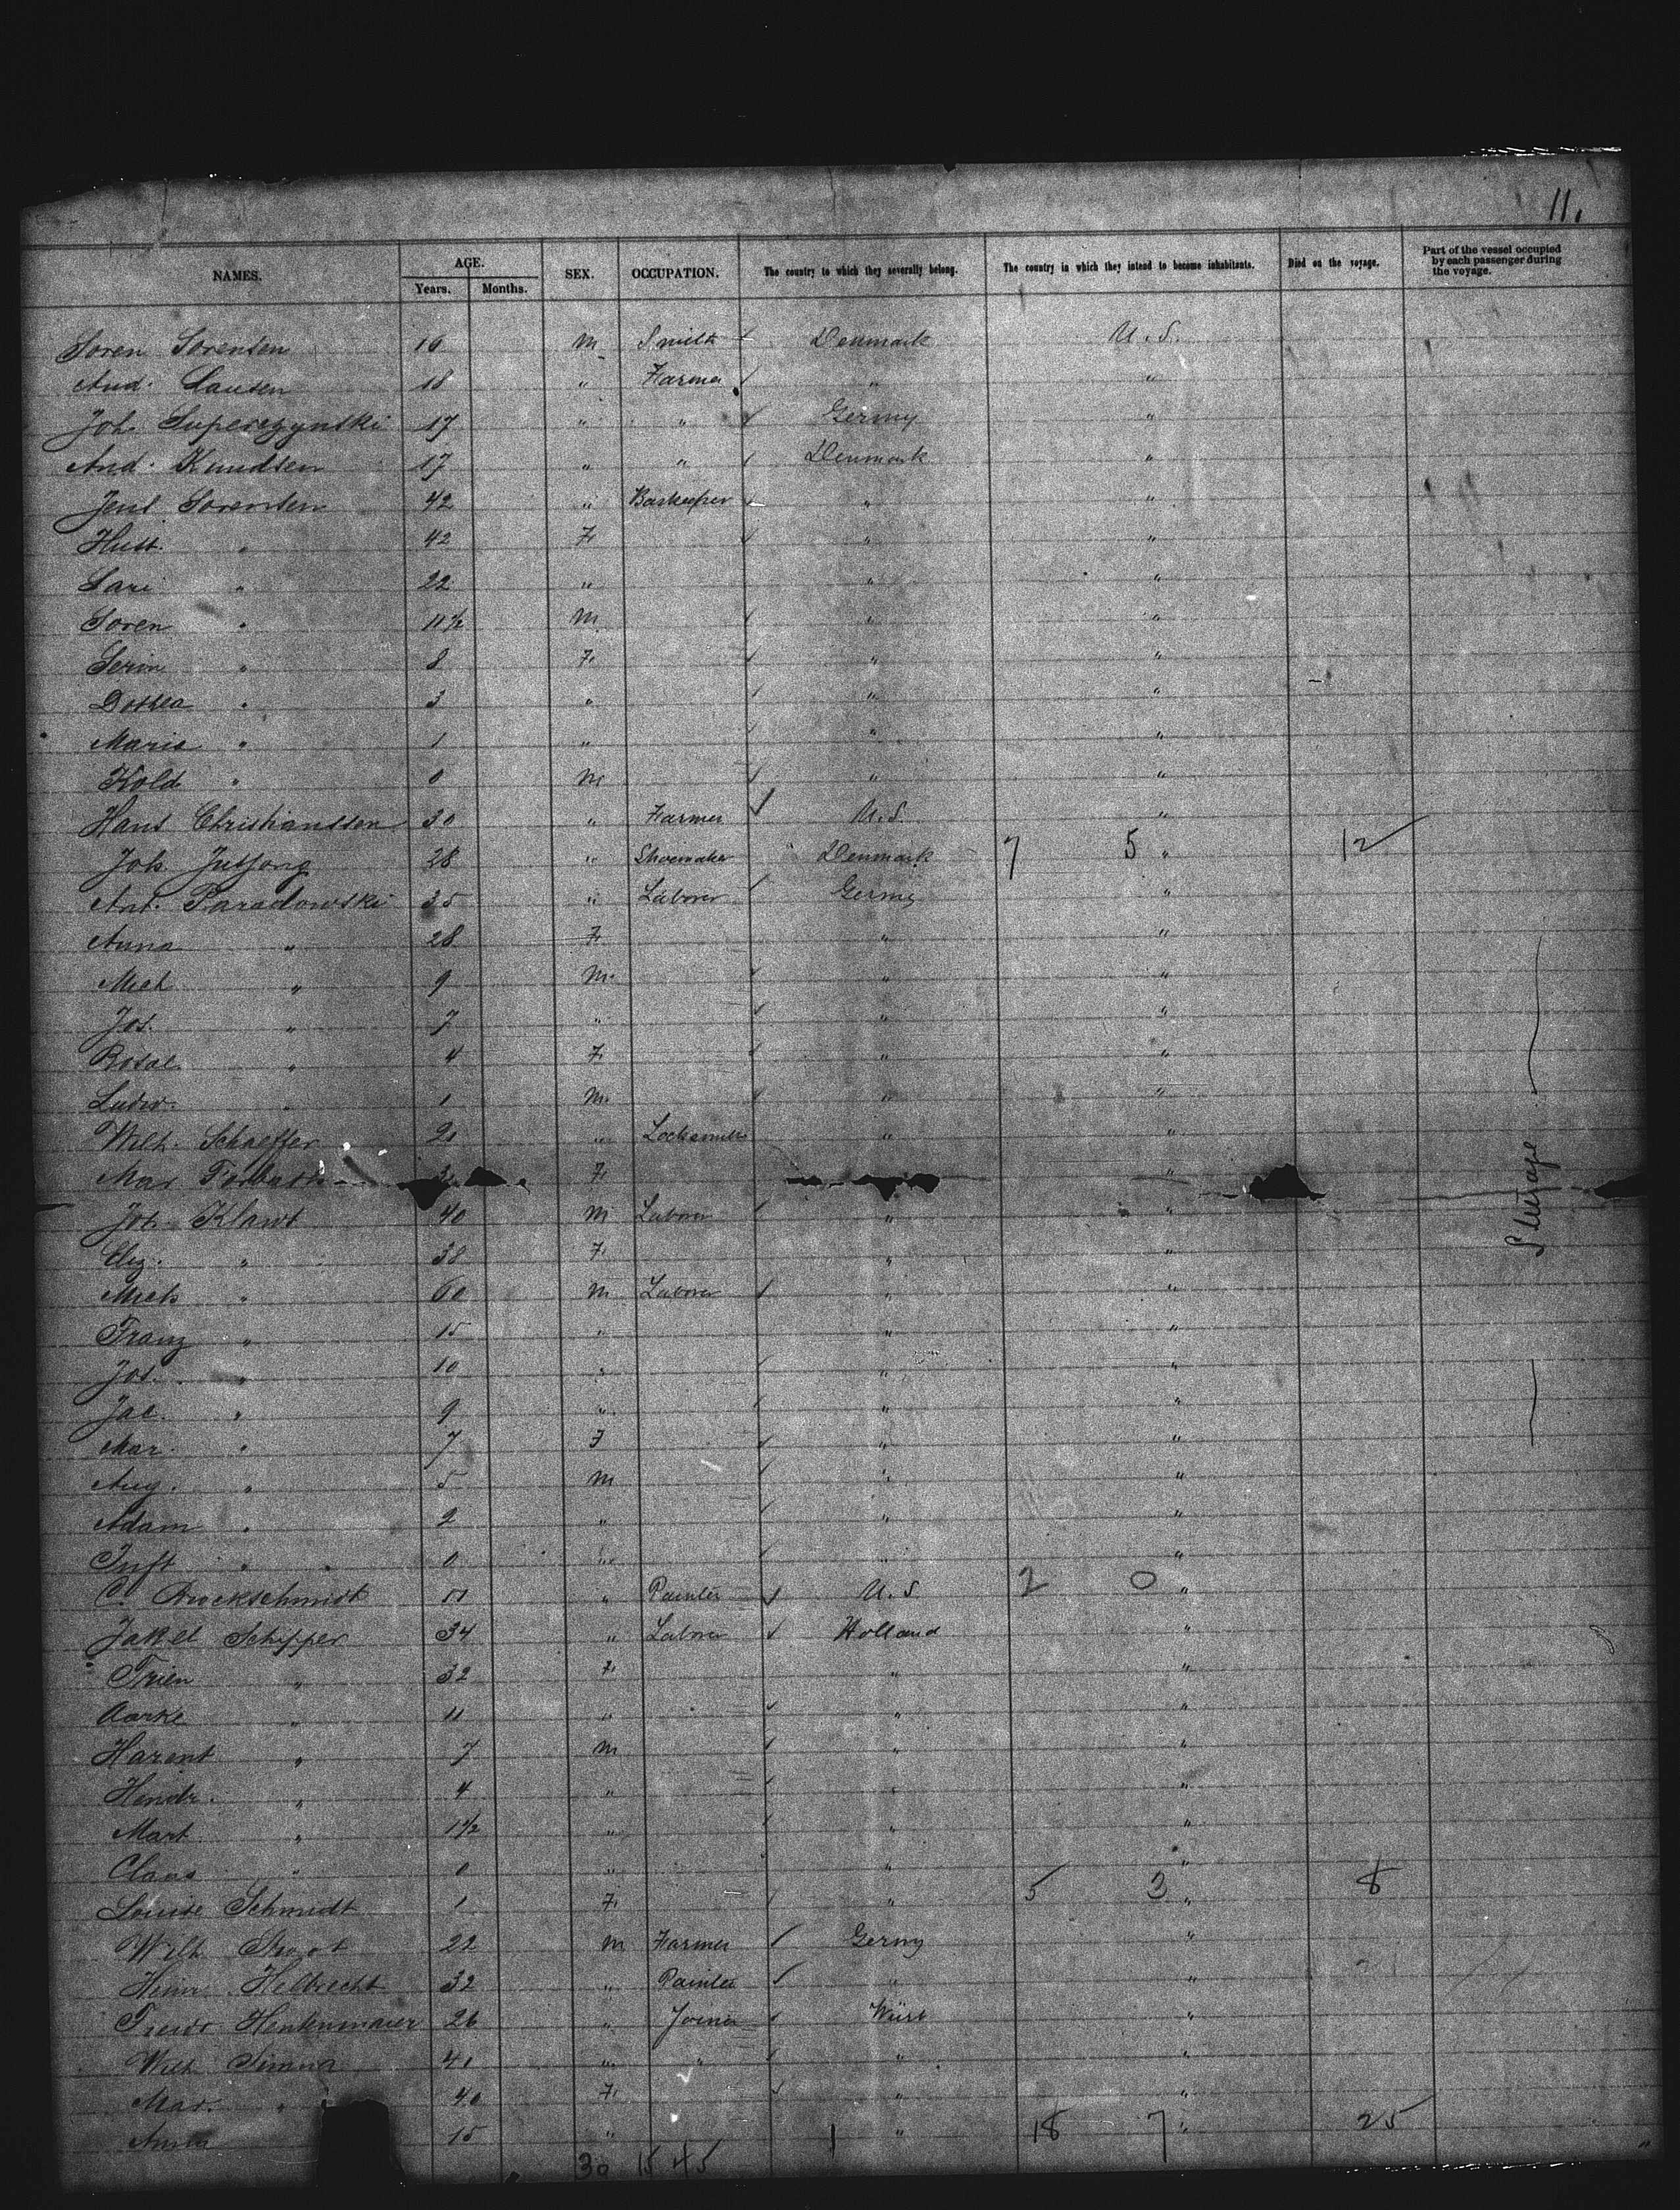 11.
NAMES. AGE. SEX. OCCUPATION. The country to which they severally belong. The country in which they intend to become inhabitants. Died on the voyage. Part of the vessel occupied by each passenger during the voyage.
Years. Months.
Soren Sorensen 16 M Smith Denmark U.S.
And. 18 " Farmer " "
Joh. 17 " " Germy "
And. Knudsen 17 " " Denmark "
Jens Sorensen 42 " Barkeeper " "
" 42 F. " "
" 22 " " "
Soren " 11½ M " "
" 8 F. " "
Dothea " 3 " " "
Maria " 1 " " "
Kold " 0 M. " "
Hans Christianssen 30 " Farmer U.S. "
Joh. 28 " Shoemaker Denmark 7 5 " 12
Ant. Paradowski 35 " Laborer Germy "
Anna " 28 F. " "
Mich " 9 M. " "
Jos. " 7 " " "
Rosal. " 4 F. " "
Ludw. " 1 M. " "
Wilh. Schaeffer " Locksmith " "
Mar F. "
Joh. Klawt 40 M Laborer " "
Eliz. " 38 F. " "
Mich " 60 M Laborer " "
Franz " 15 " " "
Jos. " 10 " " "
Jac. " 9 " " "
Mar. " 7 F " "
Aug. " 5 M " "
Adam " 2 " " "
" 0 " " "
C. " Painter U.S. 2 0 "
Schipper 34 " Laborer Holland "
Trien " 32 F. " "
Aarke " 11 " " "
Harent " 7 M " "
Hendr. " 4 " " "
Mart. " 1½ " " "
Claas " 0 " " "
Louise Schmidt 1 F. " 5 3 " 8
Wilh. 22 M Farmer Germy "
Heinr. Helbrecht 32 " Painter " "
Henkenmaier 26 " Joiner Würt "
Wilh. " " " "
Mar. " 40 F. " "
Anna 15 " " 18 7 " 25
30 15 45 1
Steerage